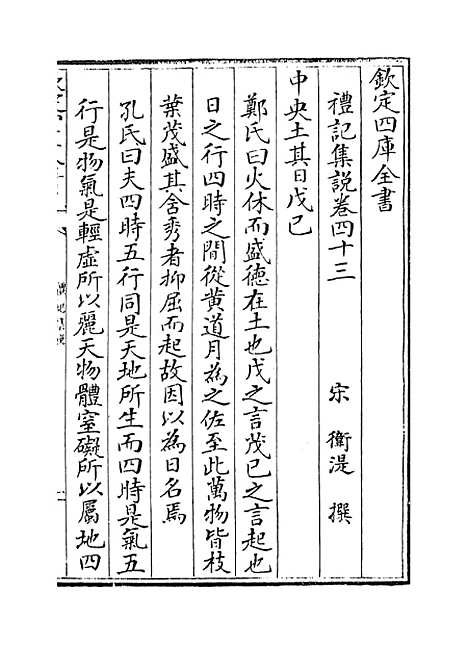 欽定四庫全書
禮記集說卷四十三
宋 衛湜 撰
中央土其日戊己
鄭氏曰火休而盛德在土也戊之言茂己之言起也
日之行四時之間從黄道月為之佐至此萬物皆枝
葉茂盛其含秀者抑屈而起故因以為日名焉
孔氏曰夫四時五行同是天地所生而四時是氣五
行是物氣是輕虛所以麗天物體窒礙所以屬地四